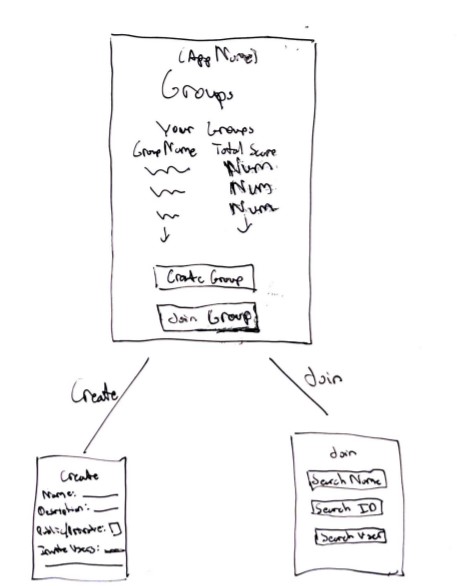 (App Name)
Groups
Your Groups
Group Name Total Score
Num
Num
Num
Create Group
Join Group
Create
Join
Create
Name:
Description:
Public/Private:
Invite Users:
Join
Search Name
Search ID
Search User